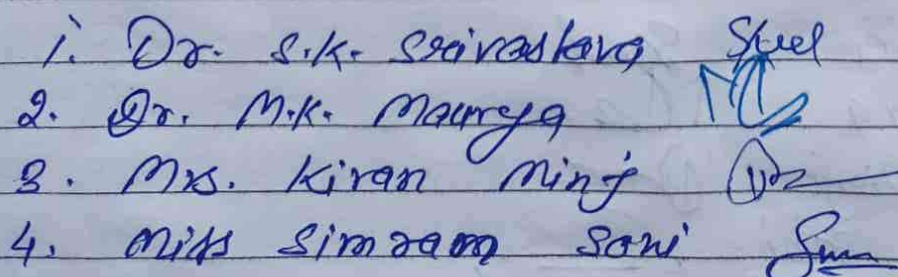 1. Dr. S.K. Srivastava
2. Dr. M.K. Maurya
3. Mrs. Kiran Minj
4. Miss Simran Soni